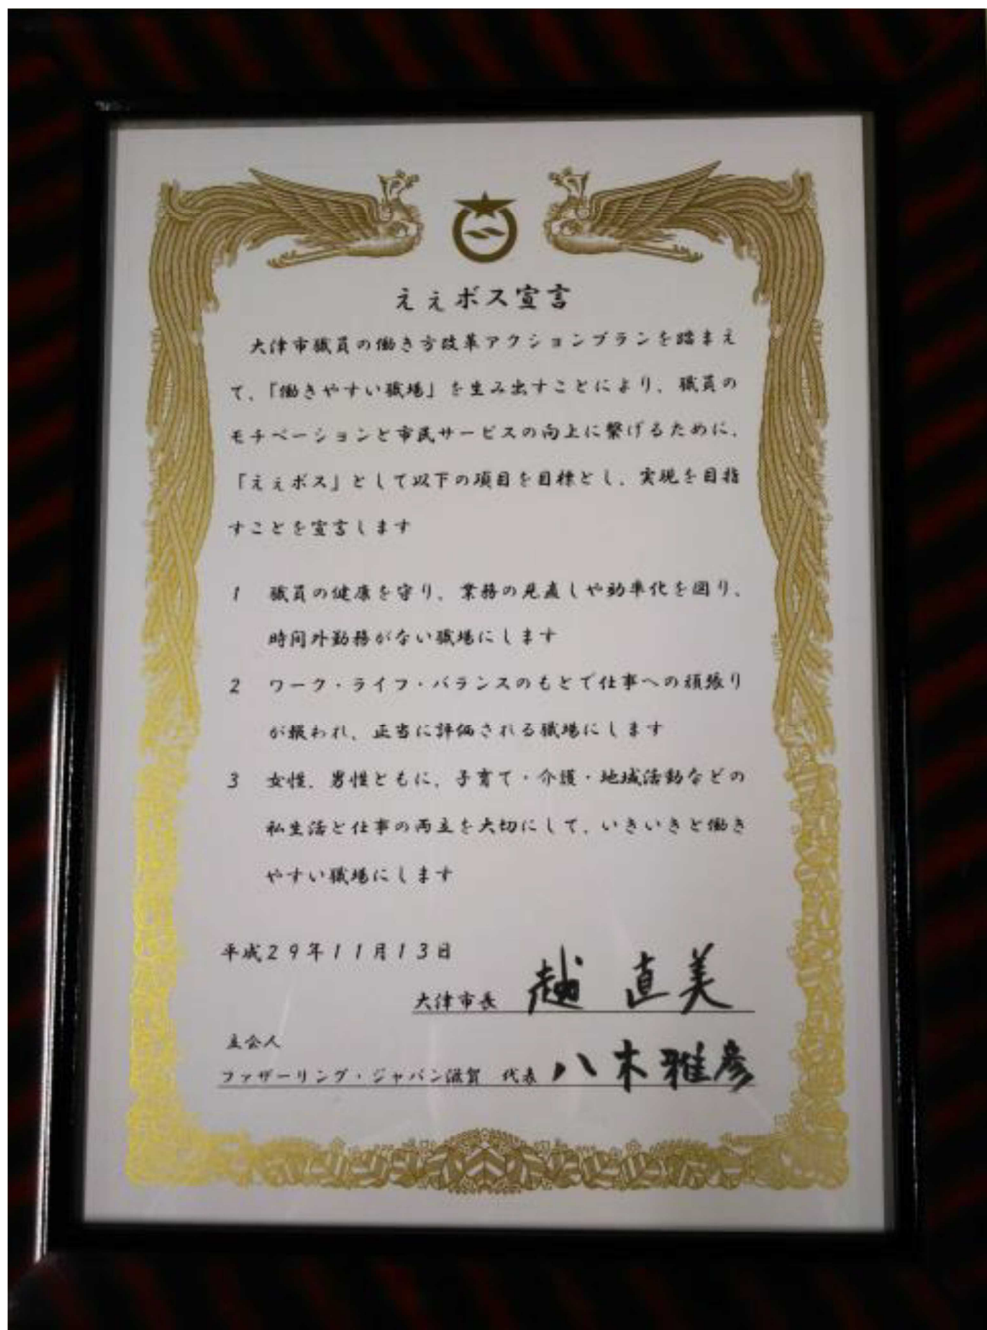 ええボス宣言
大津市職員の働き方改革アクションプランを踏まえ
て、「働きやすい職場」を生み出すことにより、職員の
モチベーションと市民サービスの向上に繋げるために、
「ええボス」として以下の項目を目標とし、実現を目指
すことを宣言します
1 職員の健康を守り、業務の見直しや効率化を図り、
時間外勤務がない職場にします
2 ワーク・ライフ・バランスのもとで仕事への頑張り
が報われ、正当に評価される職場にします
3 女性、男性ともに、子育て・介護・地域活動などの
私生活と仕事の両立を大切にして、いきいきと働き
やすい職場にします
平成29年11月13日
大津市長 越 直美
立会人
ファザーリング・ジャパン滋賀 代表 八木雅彦